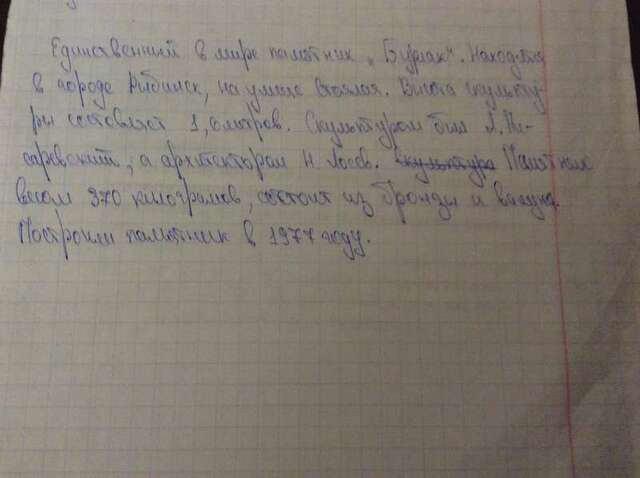 Единственный в мире памятник „Бурлак“. Находится
в городе Рыбинск, на улице Стоялая. Высота скульпту-
ры составляет 1,6 метров. Скульптуром был Л. Пи-
саревский, а архитектором Н. Лосев. скульптура Памятник
весом 370 килограмов, состоит из бронзы и валуна.
Построили памятник в 1977 году.